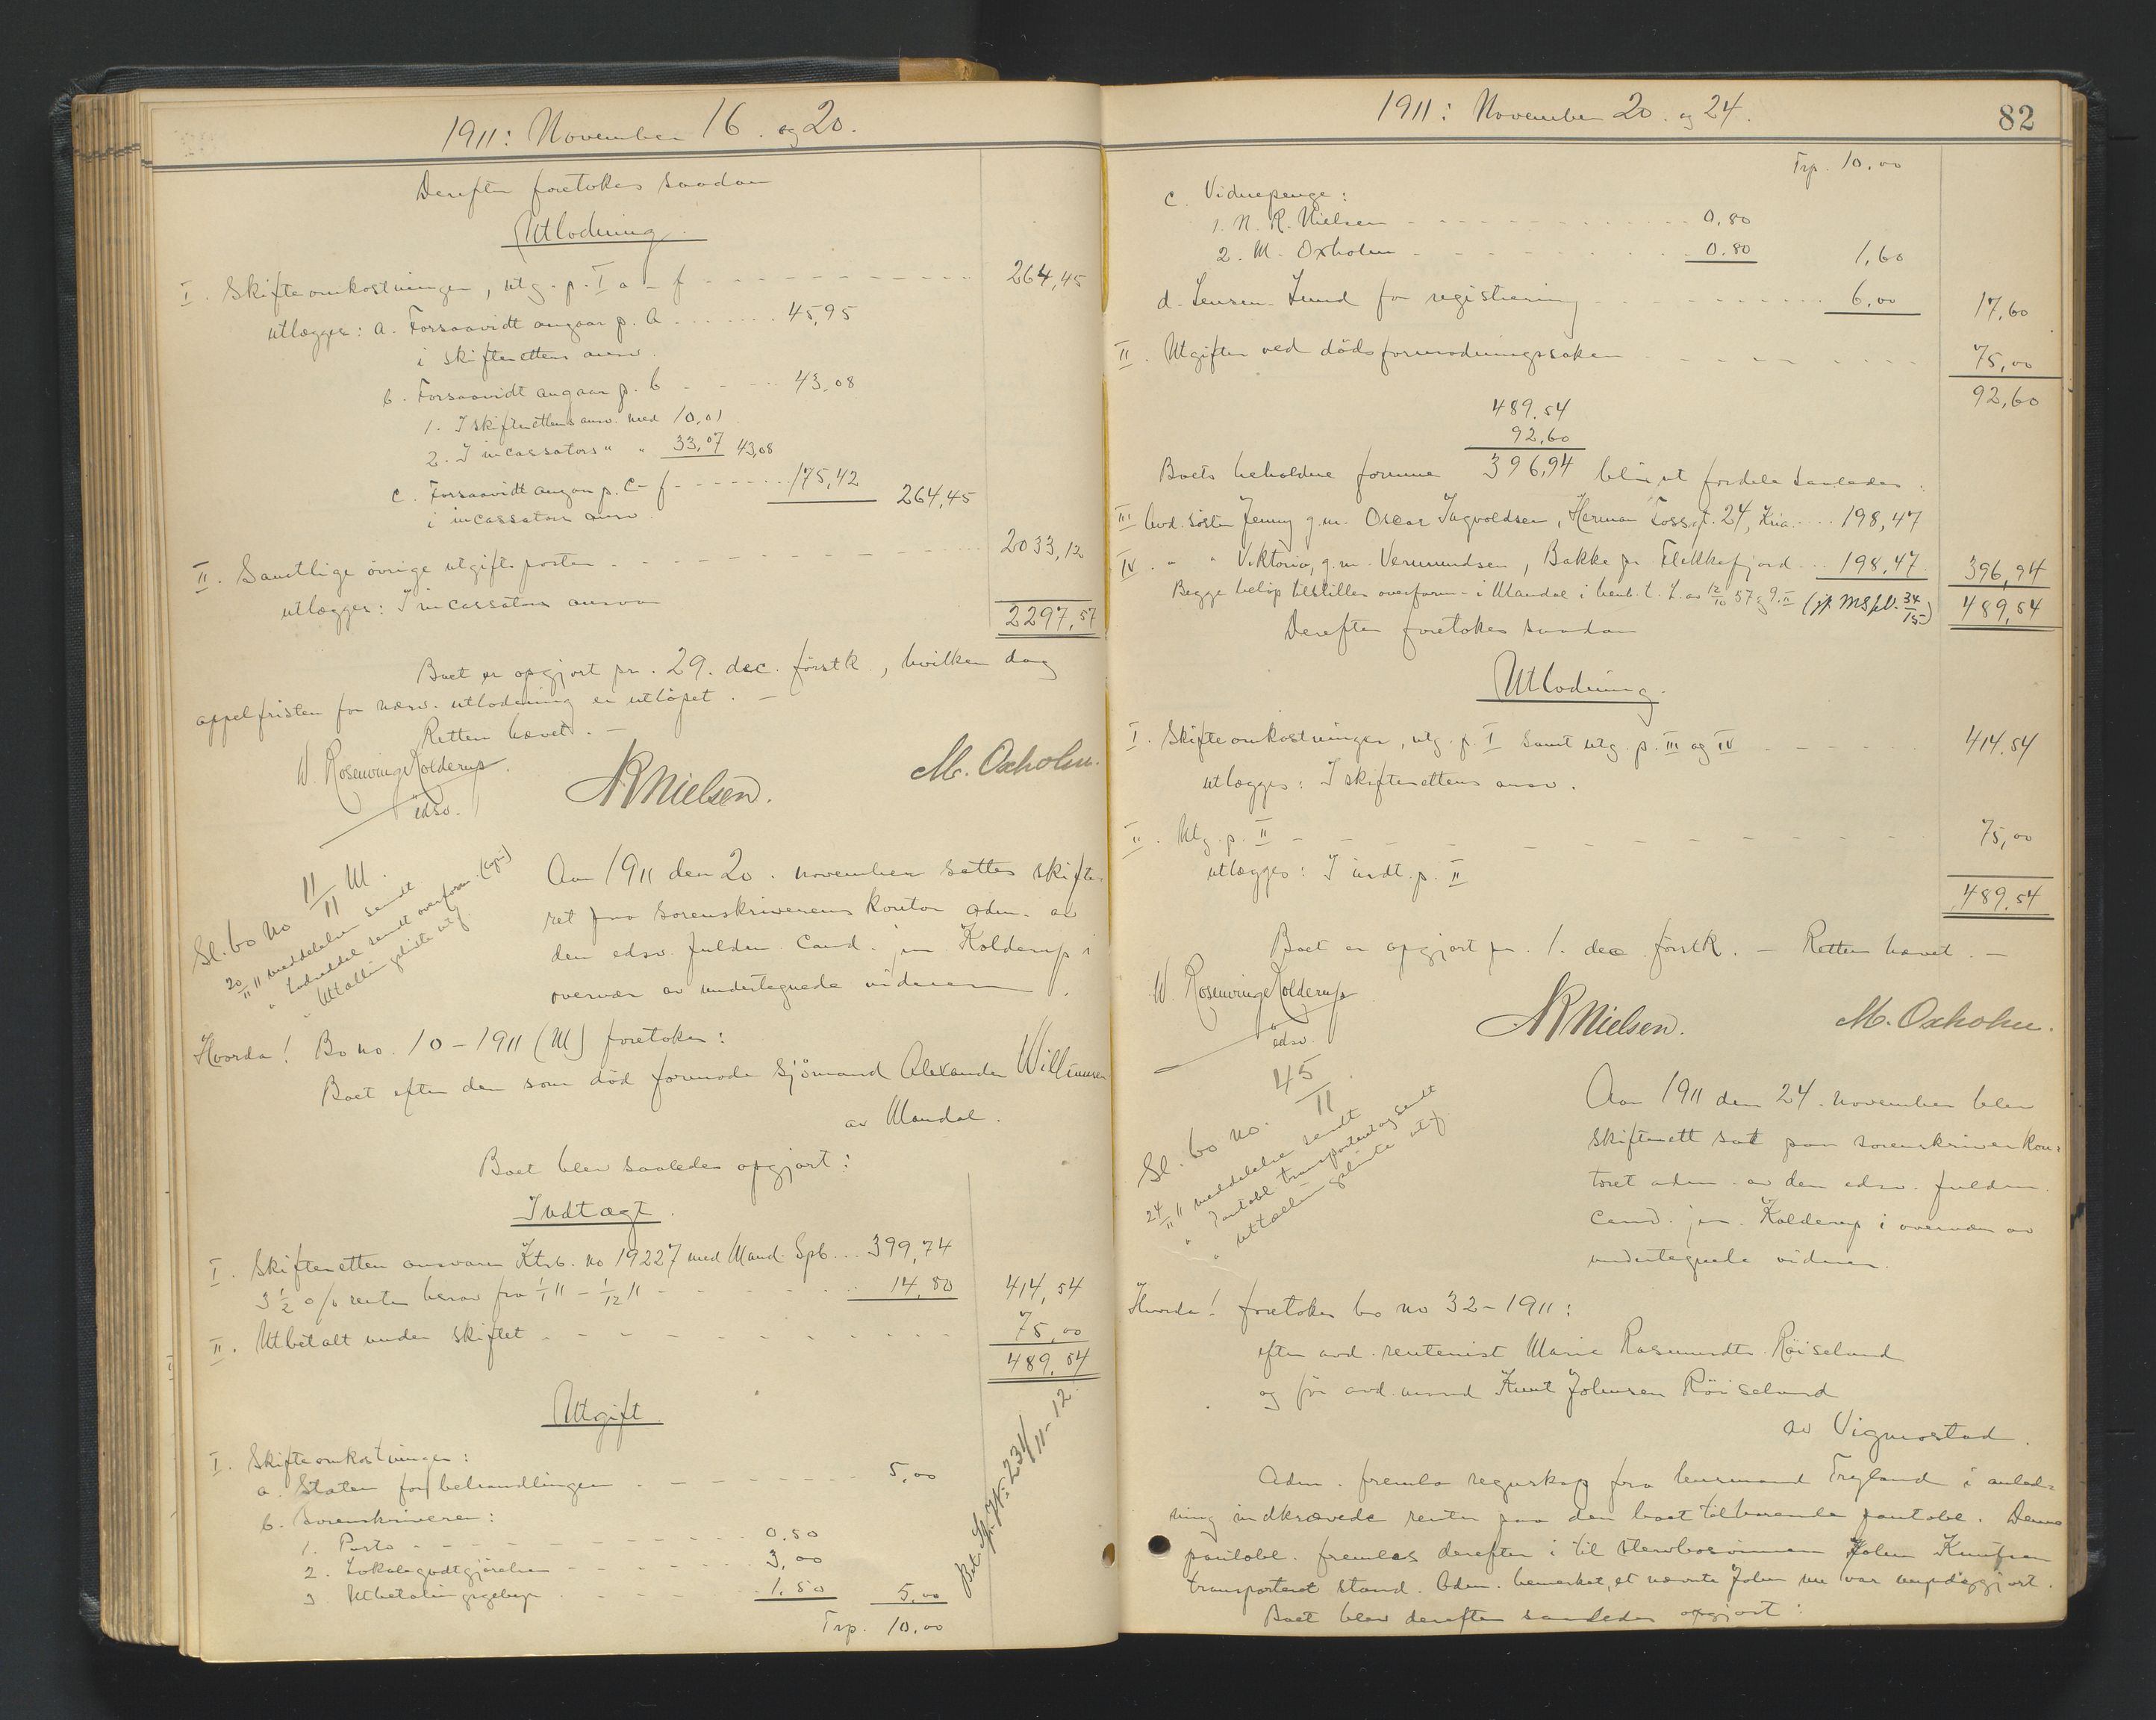 1911: November 16. og 20.
Derefter foretokes saadan
Utlodning.
I. Skifteomkostninger, utg. p. I a - f 264,45
utlægges: a. Forsaavidt angaar p. a 45,95
i skifterettens ansv.
b. Forsaavidt angaar p. b 43,08
1. I skifterettens ansv. med 10,01
2. I incassators " " 33,07 43,08
c. Forsaavidt angaar p. c - f 175,42 264,45
i incassators ansv.
II. Samtlige övrige utgiftsposter 2033,12
utlægges: I incassators ansvar
2297,57
Boet er opgjort pr. 29. dec. förstk., hvilken dag
appelfristen for nærv. utlodning er utløpet. —
Retten hævet. —
W Rosenvinge Kolderup.
edsv.
NRNielsen.
M. Oxholm.
Sl. bo no 11/11 M.
20/11 11 meddelelse sendt
" Lodseddel sendt overform. (kopi)
" Uttællin gebirte utf.
Aar 1911 den 20. november sattes skifte-
ret paa sorenskriverens kontor adm. av
den edsv. fuldm. cand. jur Kolderup i
overvær av undertegnede vidner.
Hvorda! Bo no. 10 - 1911 (M) foretokes:
Boet efter den som död formode sjömand Alexander Willumsen
av Mandal.
Boet blev saaledes opgjort:
Indtægt.
I. Skifteretten ansvarer Ktrb. no 19227 med Mand. Spb... 399,74
3 1/2 o/o renter herav fra 1/1 11 - 1/12 11 14,80 414,54
II. Utbetalt under skiftet 75,00
489,54
Utgift.
I. Skifteomkostninger:
a. Staten for behandlingen 5,00
b. Sorenskriveren:
1. Porto 0.50
2. Lokalegodtgjörelse 3,00
3. Utbetalingsgebyr 1,50 5,00
Trp. 10,00
1911: November 20. og 24.
82
Trp. 10,00
c. Vidnepenge:
1. N. R. Nielsen 0,80
2. M. Oxholm 0.80 1,60
d. Lensm. Lund for registrering 6,00 17,60
II. Utgifter ved dödsformodningssaken 75,00
92,60
489,54
92,60
Boets beholdne formue 396,94 blir at fordele saaledes:
III avd. söster Jenny g.m. Oscar Ingvoldsen, Herman Fossgt. 24, Kria 198,47
IV. " " Viktoria, g.m. Vermundsen, Bakke pr Flekkefjord 198,47 396,94
Begge beløp tilstilles overform. i Mandal i henh. t. L. av 12/10 57 § 9. II (jf. MSpV. 34/15-) 489,54
Derefter foretokes saadan
Utlodning.
I. Skifteomkostninger, utg. p. I samt utg. p. III og IV 414.54
utlægges: I skifterettens ansv.
II. Utg. p. II 75,00
utlægges: I indt. p. II
489,54
Boet er opgjort pr. 1. dec. förstk. — Retten hævet. —
W Rosenvinge Kolderup
edsv.
NRNielsen.
M. Oxholm.
Sl. bo no. 45/11.
24/11 11 meddelelse sendt
" Pantobl transportert og sendt
" uttællin gebirte utf
Aar 1911 den 24. november blev
skifterett sat paa sorenskriverkon-
toret adm. av den edsv. fuldm.
cand. jur. Kolderup i overvær av
undertegnede vidner.
Hvorda! foretokes bo no 32 - 1911:
efter avd. rentenist Marie Rasmusdtr. Röiseland
og för avd. mand Knut Johnsen Röiseland
av Vigmostad.
Adm. fremla regnskap fra lensmand Trygland i anled-
ning indkrævede renter paa den boet tilhörende pantobl. Denne
pantobl. fremlaes derefter i til stervbosönnen John Knutsen
transporteret stand. Adm. bemerket, at nævnte John nu var umyndiggjort.
Boet blev derefter saaledes opgjort: